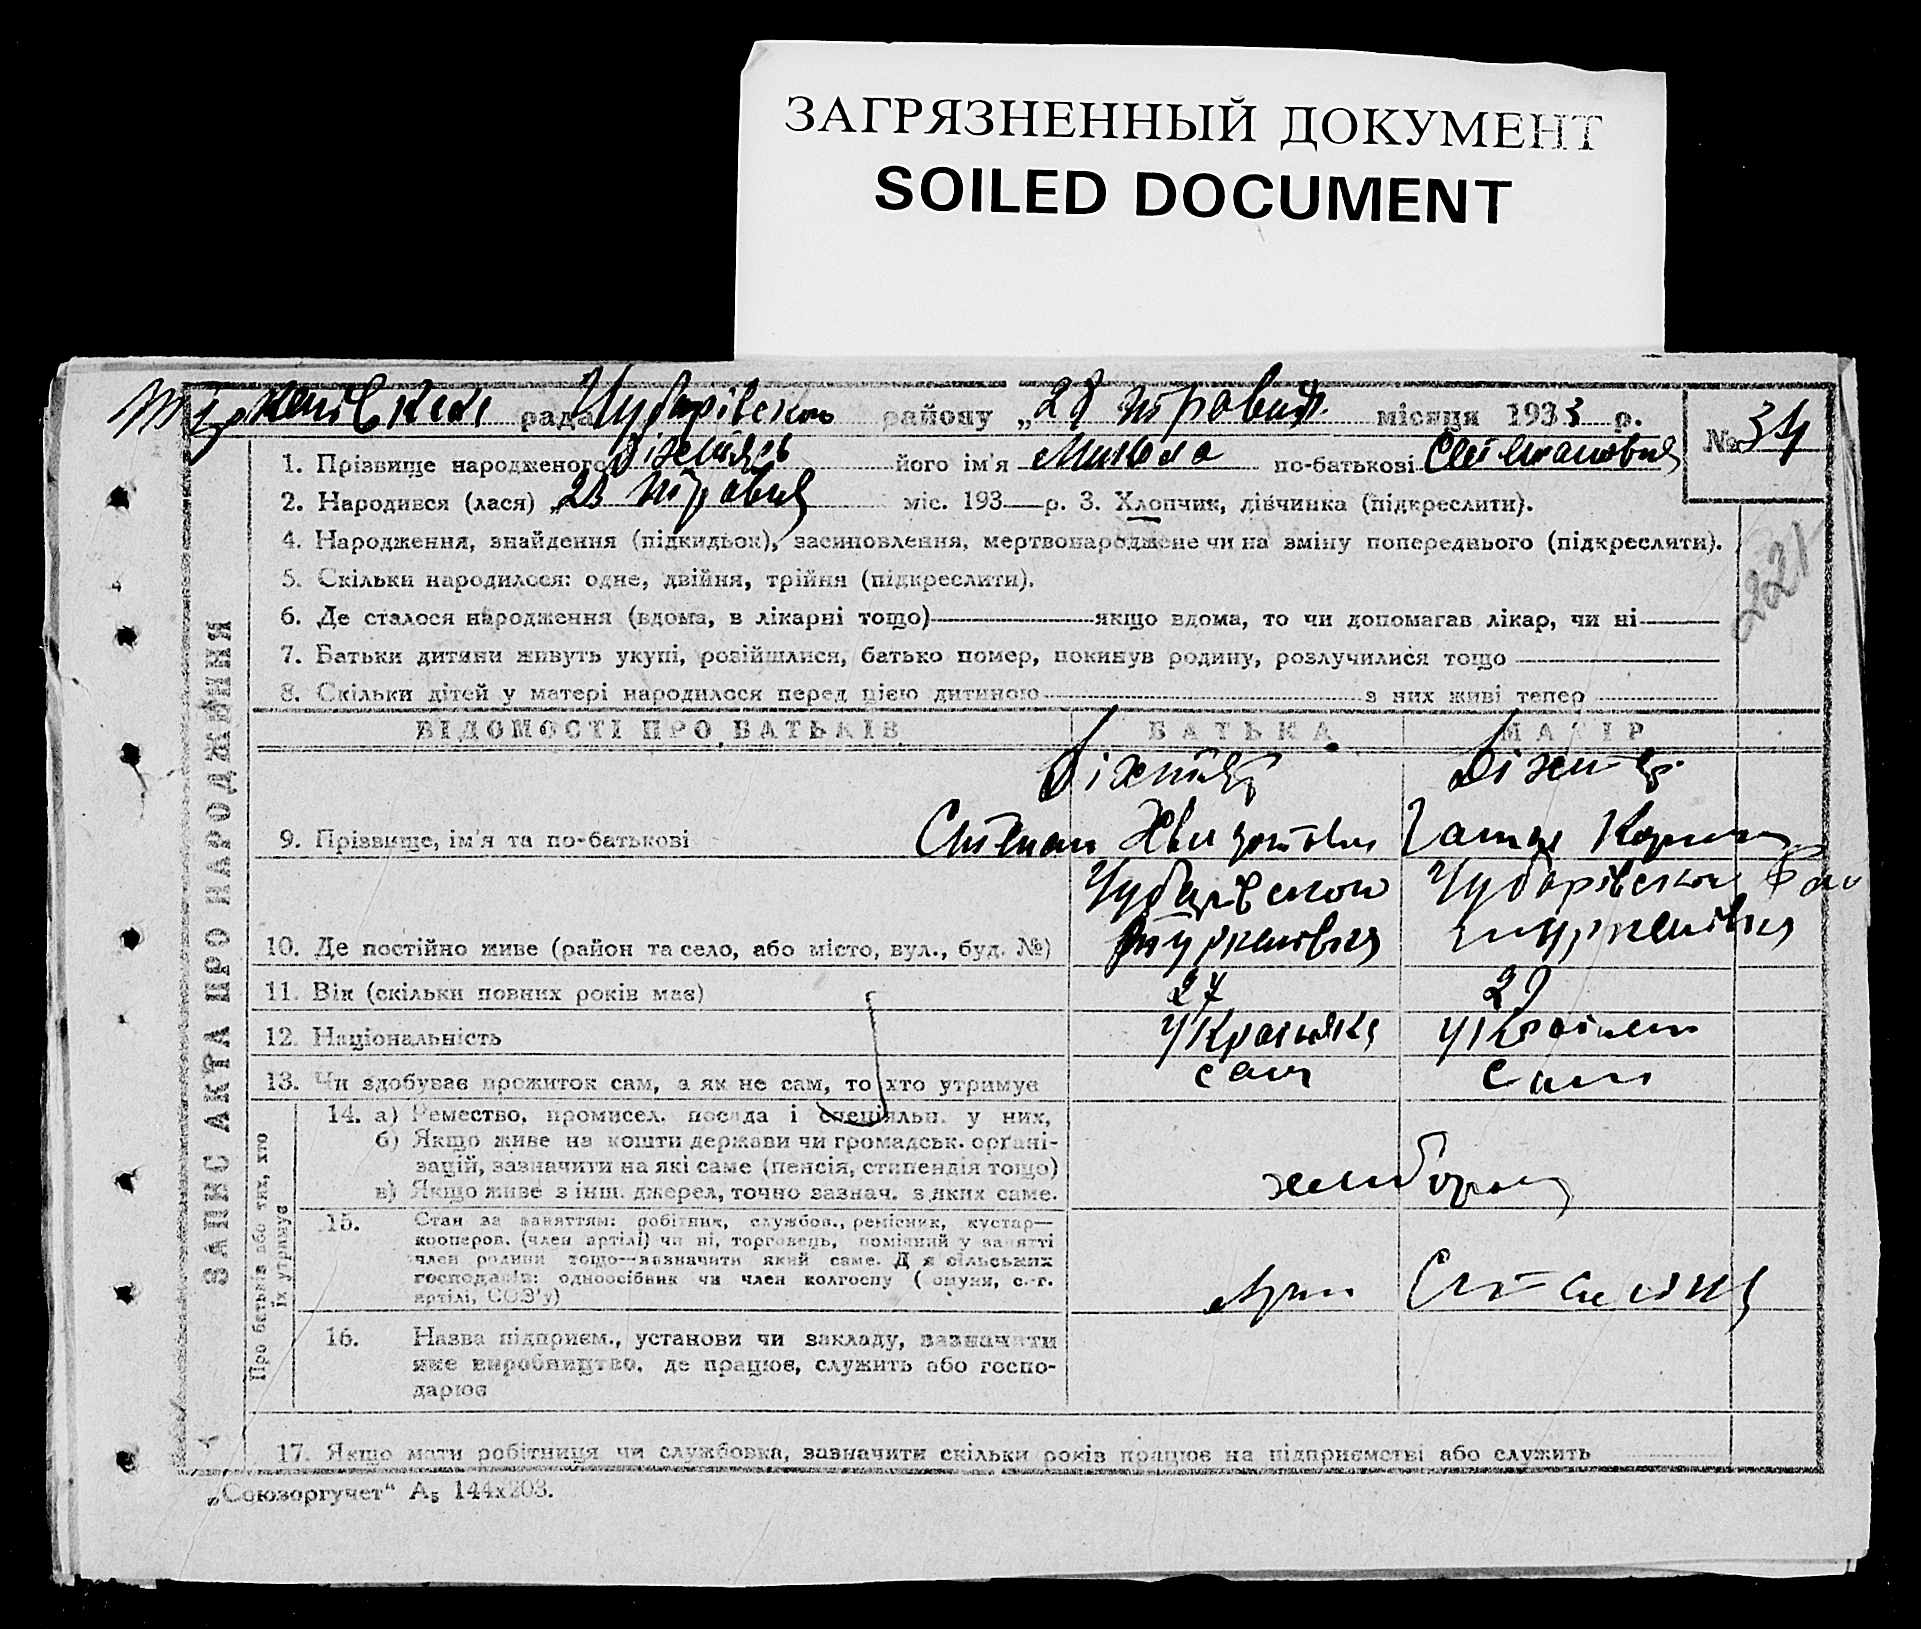 ЗАГРЯЗНЕННЫЙ ДОКУМЕНТ
SOILED DOCUMENT
рада Чубарівского району „28 травня місяця 1933 р.
№ 34
1. Прізвище народженого його ім'я Микола по-батькові Степанович
2. Народився (лася) „23 травня міс. 193 р. 3. Хлопчик, дівчинка (підкреслити).
4. Народження, знайдення (підкидьок), засиновлення, мертвонароджене чи на зміну попереднього (підкреслити).
221
5. Скільки народилося: одне, двійня, трійня (підкреслити).
6. Де сталося народження (вдома, в лікарні тощо) якщо вдома, то чи допомагав лікар, чи ні
7. Батьки дитини живуть укупі, розійшлися, батько помер, покинув родину, розлучилися тощо
8. Скільки дітей у матері народилося перед цією дитиною з них живі тепер
ЗАПИС АКТА ПРО НАРОДЖЕННЯ
ВІДОМОСТІ ПРО БАТЬКІВ БАТЬКА МАТІР
9. Прізвище, ім'я та по-батькові Степан
Чубарівского Чубарівского
10. Де постійно живе (район та село, або місто, вул., буд. №)
11. Вік (скільки повних років має) 27 29
12. Національність
13. Чи здобуває прожиток сам, а як не сам, то хто утримує сам сам
Про батьків або тих, хто їх утримує
14. а) Ремество, промисел, посада і спеціяльн. у них,
б) Якщо живе на кошти держави чи громадськ. органі-
зацій, зазначити на які саме (пенсія, стипендія тощо)
в) Якщо живе з інш. джерел, точно зазнач. з яких саме.
хлібороб
15. Стан за заняттям: робітник, службов., ремісник, кустар—
кооперов. (член артілі) чи ні, торговець, помічний у занятті
член родини тощо—зазначити який саме. Для сільських
господарів: одноосібник чи член колгоспу (комуни, с.-г.
артілі, СОЗ'у)
16. Назва підприєм., установи чи закладу, зазначити
яке виробництво, де працює, служить або госпо-
дарює
17. Якщо мати робітниця чи службовка, зазначити скільки років працює на підприємстві або служить
„Союзоргучет" А5 144х203.